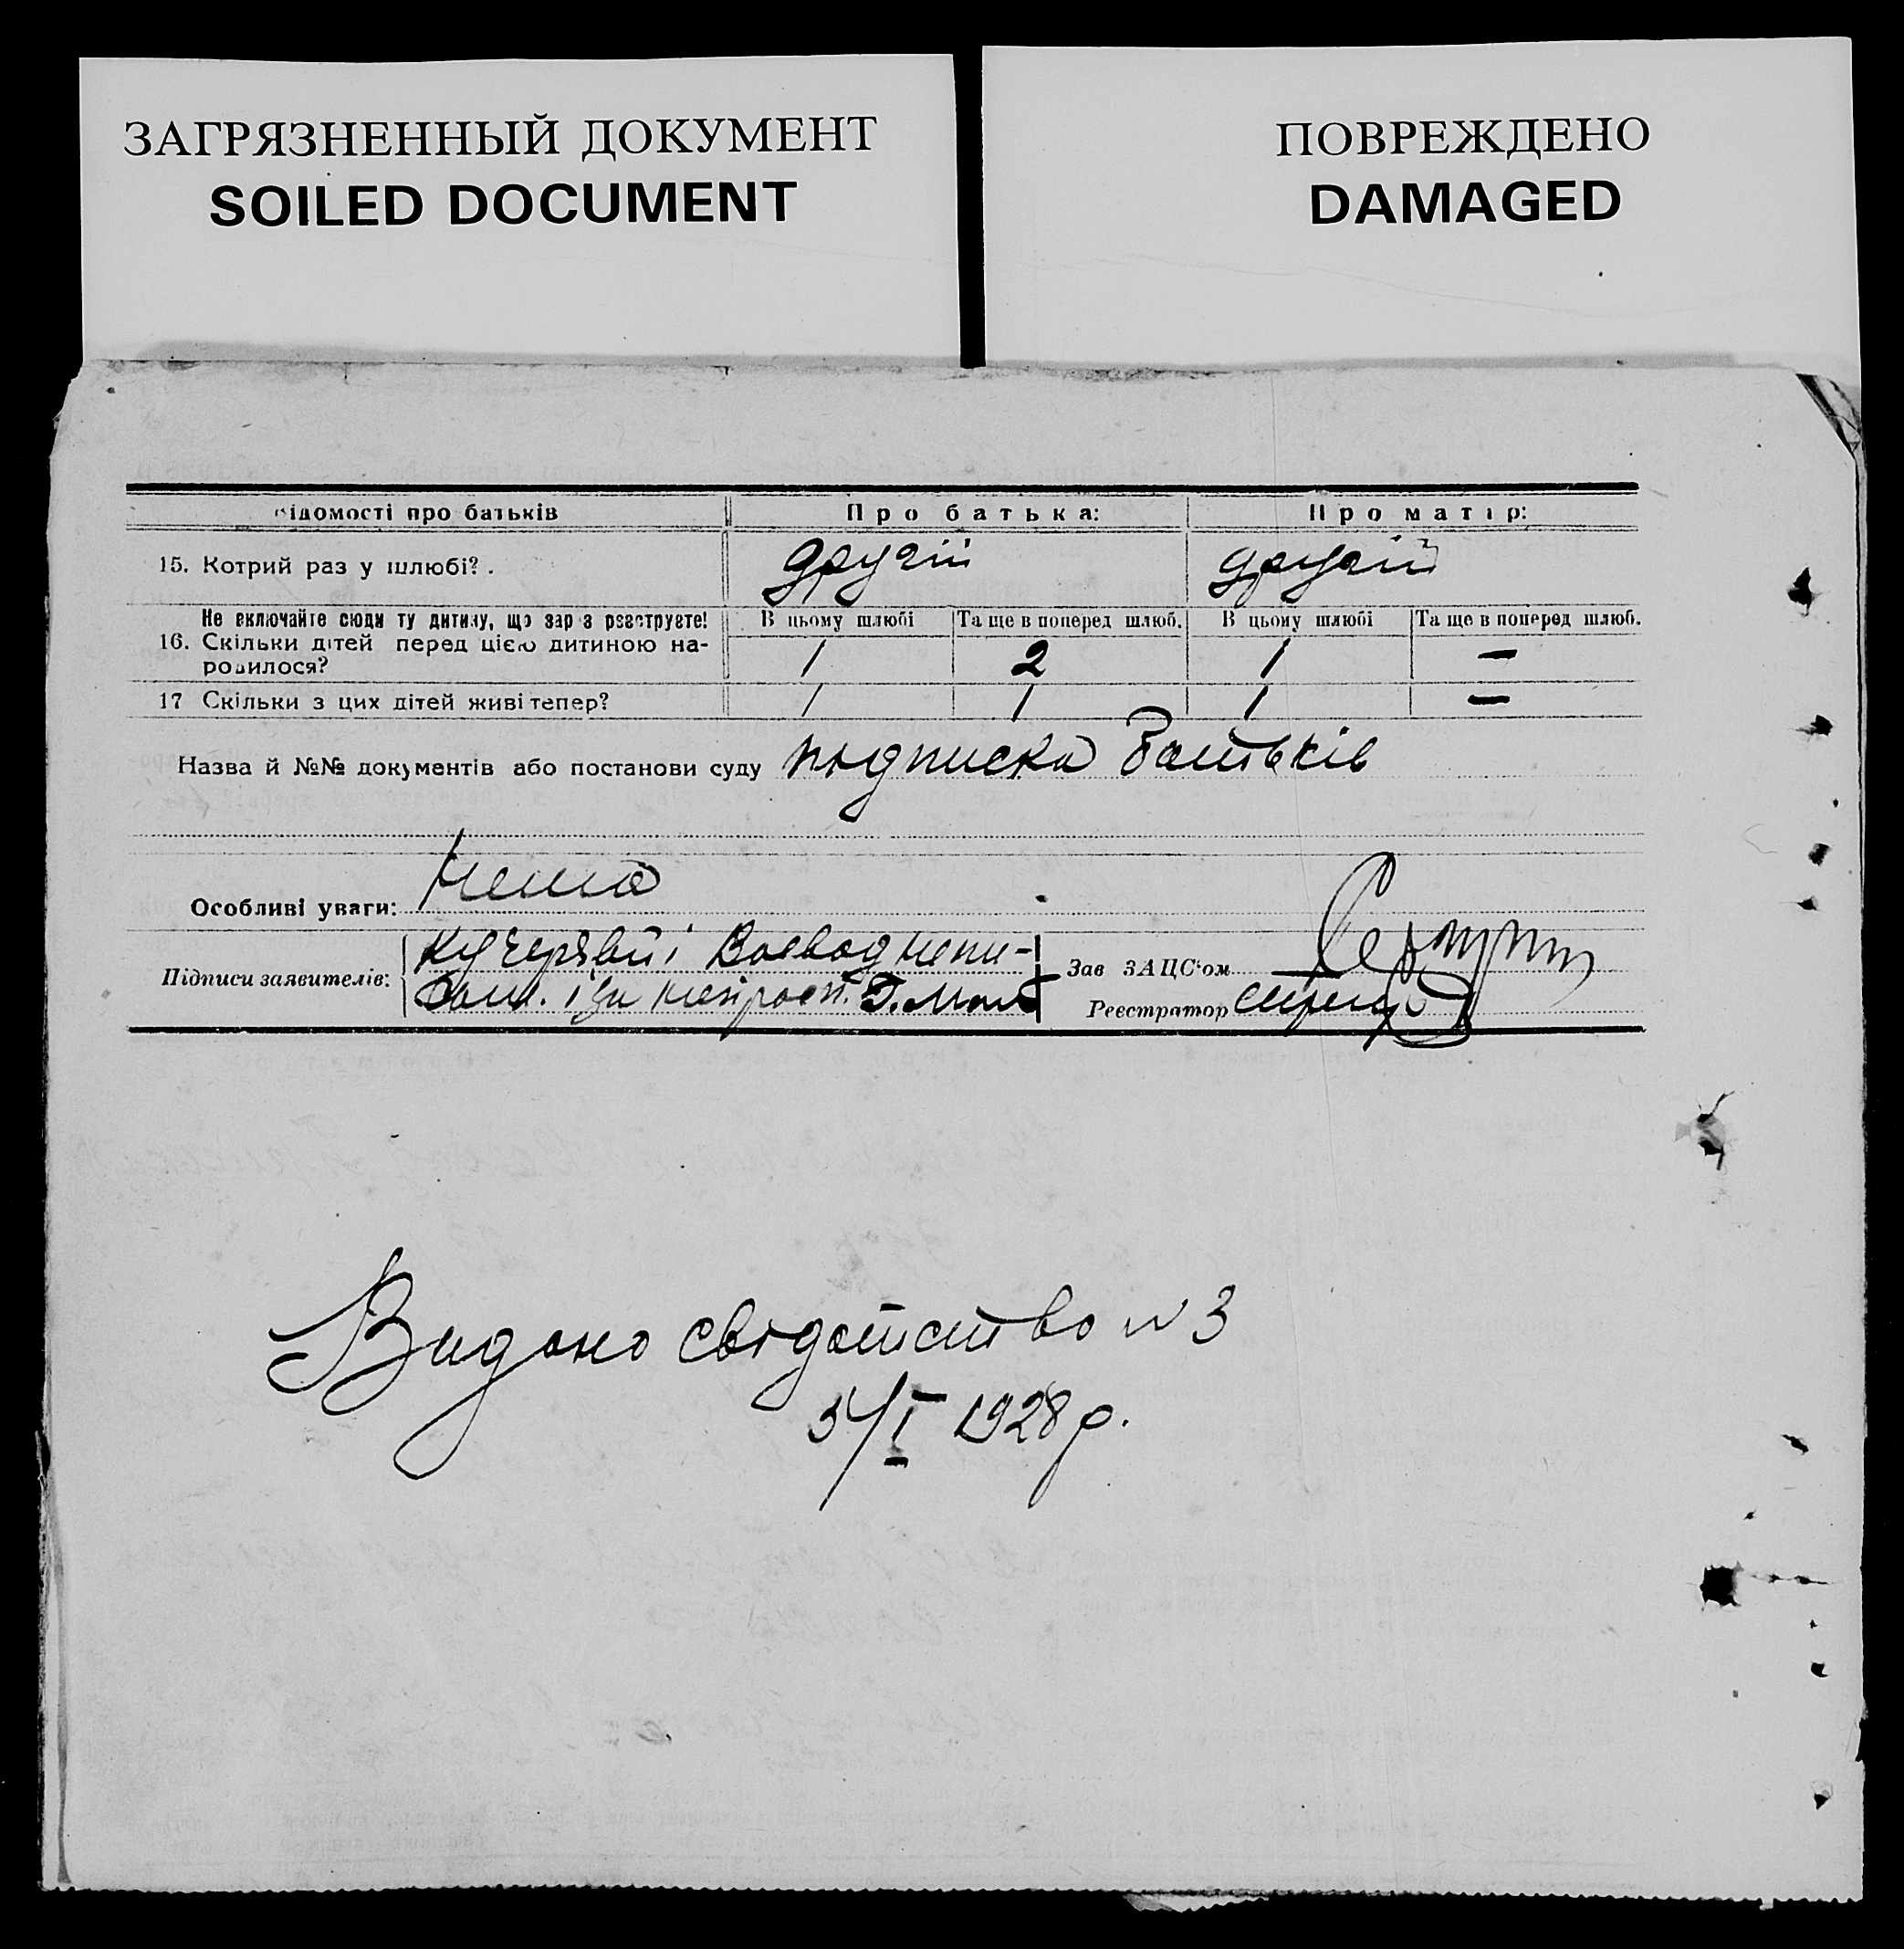 ЗАГРЯЗНЕННЫЙ ДОКУМЕНТ
SOILED DOCUMENT
ПОВРЕЖДЕНО
DAMAGED
відомості про батьків Про батька: Про матір:
15. Котрий раз у шлюбі?. другій другій
Не включайте сюди ту дитину, що зараз реєструєте! В цьому шлюбі Та ще в поперед шлюб. В цьому шлюбі Та ще в поперед шлюб.
16. Скільки дітей перед цією дитиною на-
родилося? 1 2 1 —
17 Скільки з цих дітей живі тепер? 1 1 1 —
Назва й №№ документів або постанови суду підписка батьків
Особливі уваги: нема
Підписи заявителів: Кучерявий і Воевод непи-
Зав ЗАЦС'ом
Реєстратор
Видано свідотство N 3
5/I 1928 р.